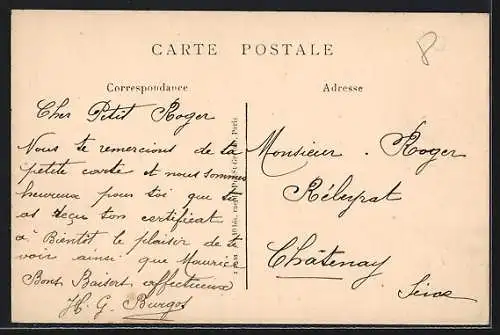 CARTE POSTALE
Correspondance
Adresse
Cher Petit Roger
Nous te remercions de ta
petite carte et nous sommes
heureux pour toi que tu
as reçu ton certificat
à Bientôt le plaisir de te
voir ainsi que Maurice
Bons Baisers affectueux
H. G. Burgos
Monsieur . Roger
Rélupat
Châtenay
Seine
Paris